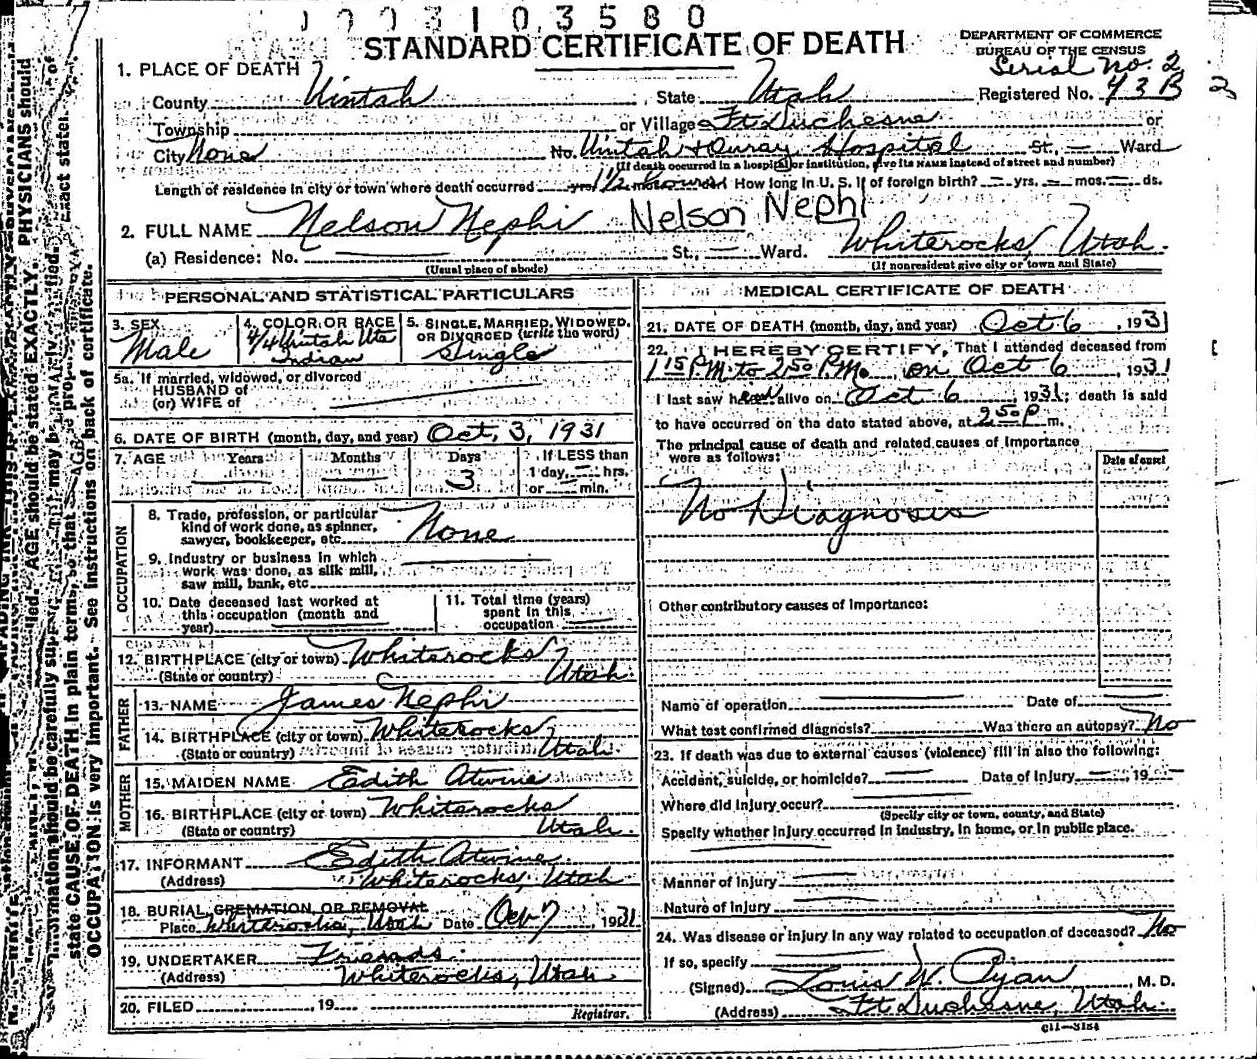 1003103580
STANDARD CERTIFICATE OF DEATH
DEPARTMENT OF COMMERCE
BUREAU OF THE CENSUS
Serial No. 2
1. PLACE OF DEATH
County Uintah State Utah Registered No. 43B 2
Township or Village Ft Duchesne or
City None No. Uintah & Ouray Hospital St., Ward
(If death occurred in a hospital or institution, give its NAME instead of street and number)
Length of residence in city or town where death occurred yrs. 1 1/2 hours How long in U. S. If of foreign birth? yrs. mos. ds.
2. FULL NAME Nelson Nephi Nelson Nephi
(a) Residence: No. St., Ward. Whiterocks, Utah.
(Usual place of abode) (If nonresident give city or town and State)
PERSONAL AND STATISTICAL PARTICULARS
3. SEX Male
4. COLOR OR RACE 4/4 Uintah Ute Indian
5. SINGLE, MARRIED, WIDOWED, OR DIVORCED (write the word) Single
5a. If married, widowed, or divorced
HUSBAND of
(or) WIFE of
6. DATE OF BIRTH (month, day, and year) Oct, 3, 1931
7. AGE Years Months Days 3 If LESS than 1 day, hrs. or min.
OCCUPATION
8. Trade, profession, or particular
kind of work done, as spinner,
sawyer, bookkeeper, etc. None
9. Industry or business in which
work was done, as silk mill,
saw mill, bank, etc
10. Date deceased last worked at
this occupation (month and
year)
11. Total time (years)
spent in this
occupation
12. BIRTHPLACE (city or town) Whiterocks
(State or country) Utah.
FATHER
13. NAME James Nephi
14. BIRTHPLACE (city or town) Whiterocks
(State or country) Utah.
MOTHER
15. MAIDEN NAME Edith Atwine
16. BIRTHPLACE (city or town) Whiterocks
(State or country) Utah.
17. INFORMANT Edith Atwine.
(Address) Whiterocks, Utah
18. BURIAL, CREMATION, OR REMOVAL
Place Whiterocks, Utah Date Oct 7, 1931
19. UNDERTAKER Friends.
(Address) Whiterocks, Utah.
20. FILED , 19
Registrar.
MEDICAL CERTIFICATE OF DEATH
21. DATE OF DEATH (month, day, and year) Oct 6, 1931
22. I HEREBY CERTIFY, That I attended deceased from
1 15 P.M. to 2 50 P.M. on Oct 6, 1931
I last saw h alive on Oct 6, 1931; death is said
to have occurred on the date stated above, at 2 50 P m.
The principal cause of death and related causes of importance
were as follows:
Date of onset
No Diagnosis
Other contributory causes of importance:
Name of operation Date of
What test confirmed diagnosis? Was there an autopsy? No
23. If death was due to external causes (violence) fill in also the following:
Accident, suicide, or homicide? Date of injury , 19
Where did injury occur?
(Specify city or town, county, and State)
Specify whether injury occurred in industry, in home, or in public place.
Manner of injury
Nature of injury
24. Was disease or injury in any way related to occupation of deceased? No
If so, specify
(Signed) Louis W. Ryan, M. D.
(Address) Ft Duchesne, Utah.
c11—3184
AGE should be stated EXACTLY. PHYSICIANS should
state CAUSE OF DEATH in plain terms, so that
OCCUPATION is very important. See instructions on back of certificate.